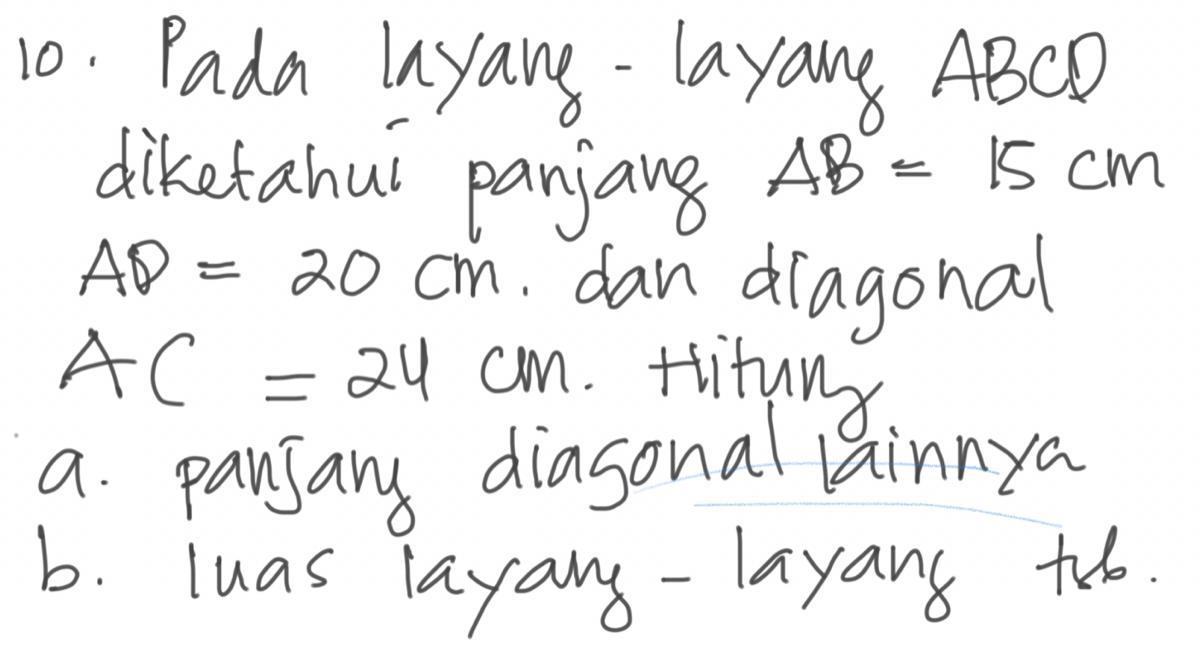 10. Pada layang - layang ABCD
diketahui panjang AB = 15 cm
AD = 20 cm. dan diagonal
AC = 24 cm. Hitung
a. panjang diagonal lainnya
b. luas layang - layang tsb.